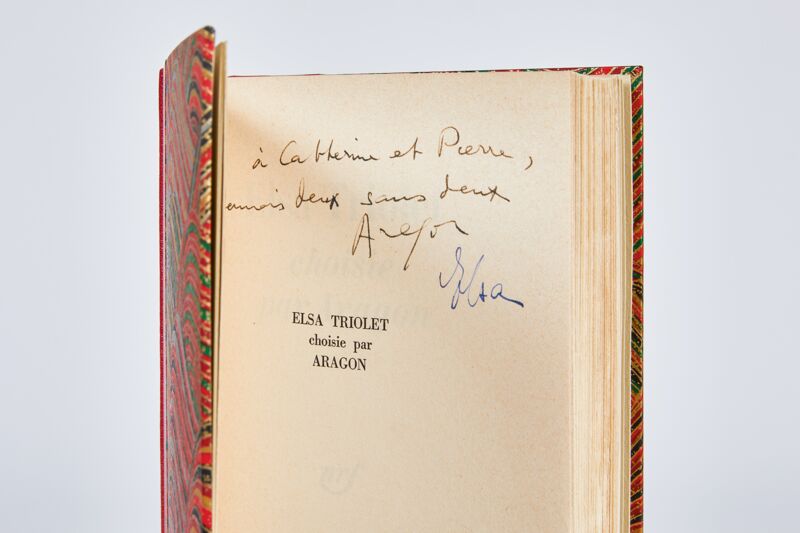 à Catherine et Pierre,
jamais deux sans deux
Aragon
Elsa
ELSA TRIOLET
choisie par
ARAGON
choisie
par Aragon
nrf